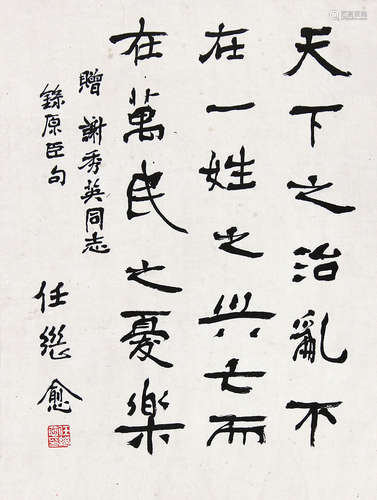 天下之治亂不
在一姓之興亡而
在萬民之憂樂
贈謝秀英同志
錄原臣句
任繼愈